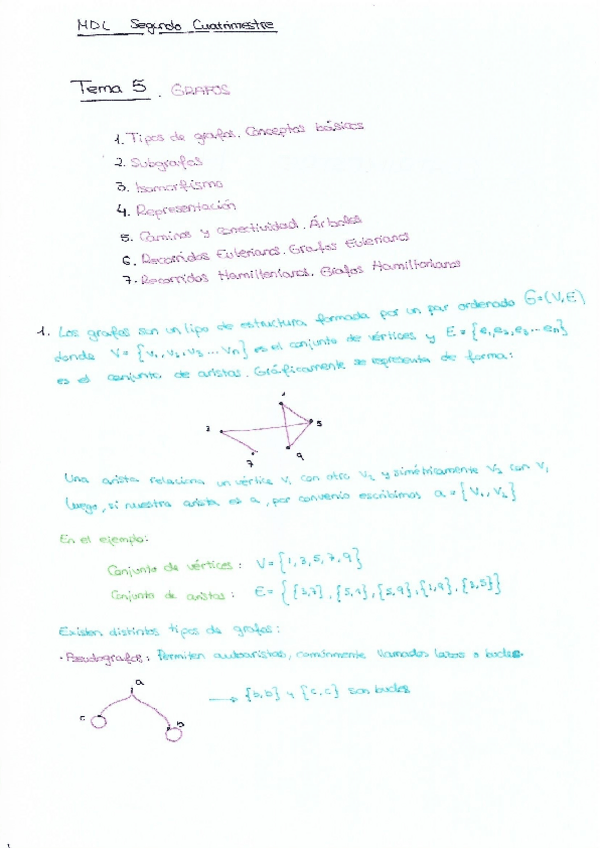 MDL Segundo Cuatrimestre
Tema 5. GRAFOS
1. Tipos de grafos. Conceptos básicos
2. Subgrafos
3. Isomorfismo
4. Representación
5. Caminos y conectividad. Árboles
6. Recorridos Eulerianos. Grafos Eulerianos
7. Recorridos Hamiltonianos. Grafos Hamiltonianos
1. Los grafos son un tipo de estructura formada por un par ordenado G=(V,E)
donde V = {v₁, v₂, v₃ ... vn} es el conjunto de vértices y E = {e₁, e₂, e₃ ... en}
es el conjunto de aristas. Gráficamente se representa de forma:
1
3
5
7
9
Una arista relaciona un vértice v₁ con otro v₂ y simétricamente v₂ con v₁
luego, si nuestra arista es a, por convenio escribimos a = {v₁, v₂}
En el ejemplo:
Conjunto de vértices: V = {1, 3, 5, 7, 9}
Conjunto de aristas: E = {{3,7}, {5,1}, {5,9}, {1,9}, {3,5}}
Existen distintos tipos de grafos:
· Pseudografos: Permiten autoaristas, comúnmente llamados lazos o bucles.
a
c
b
→ {b,b} y {c,c} son bucles